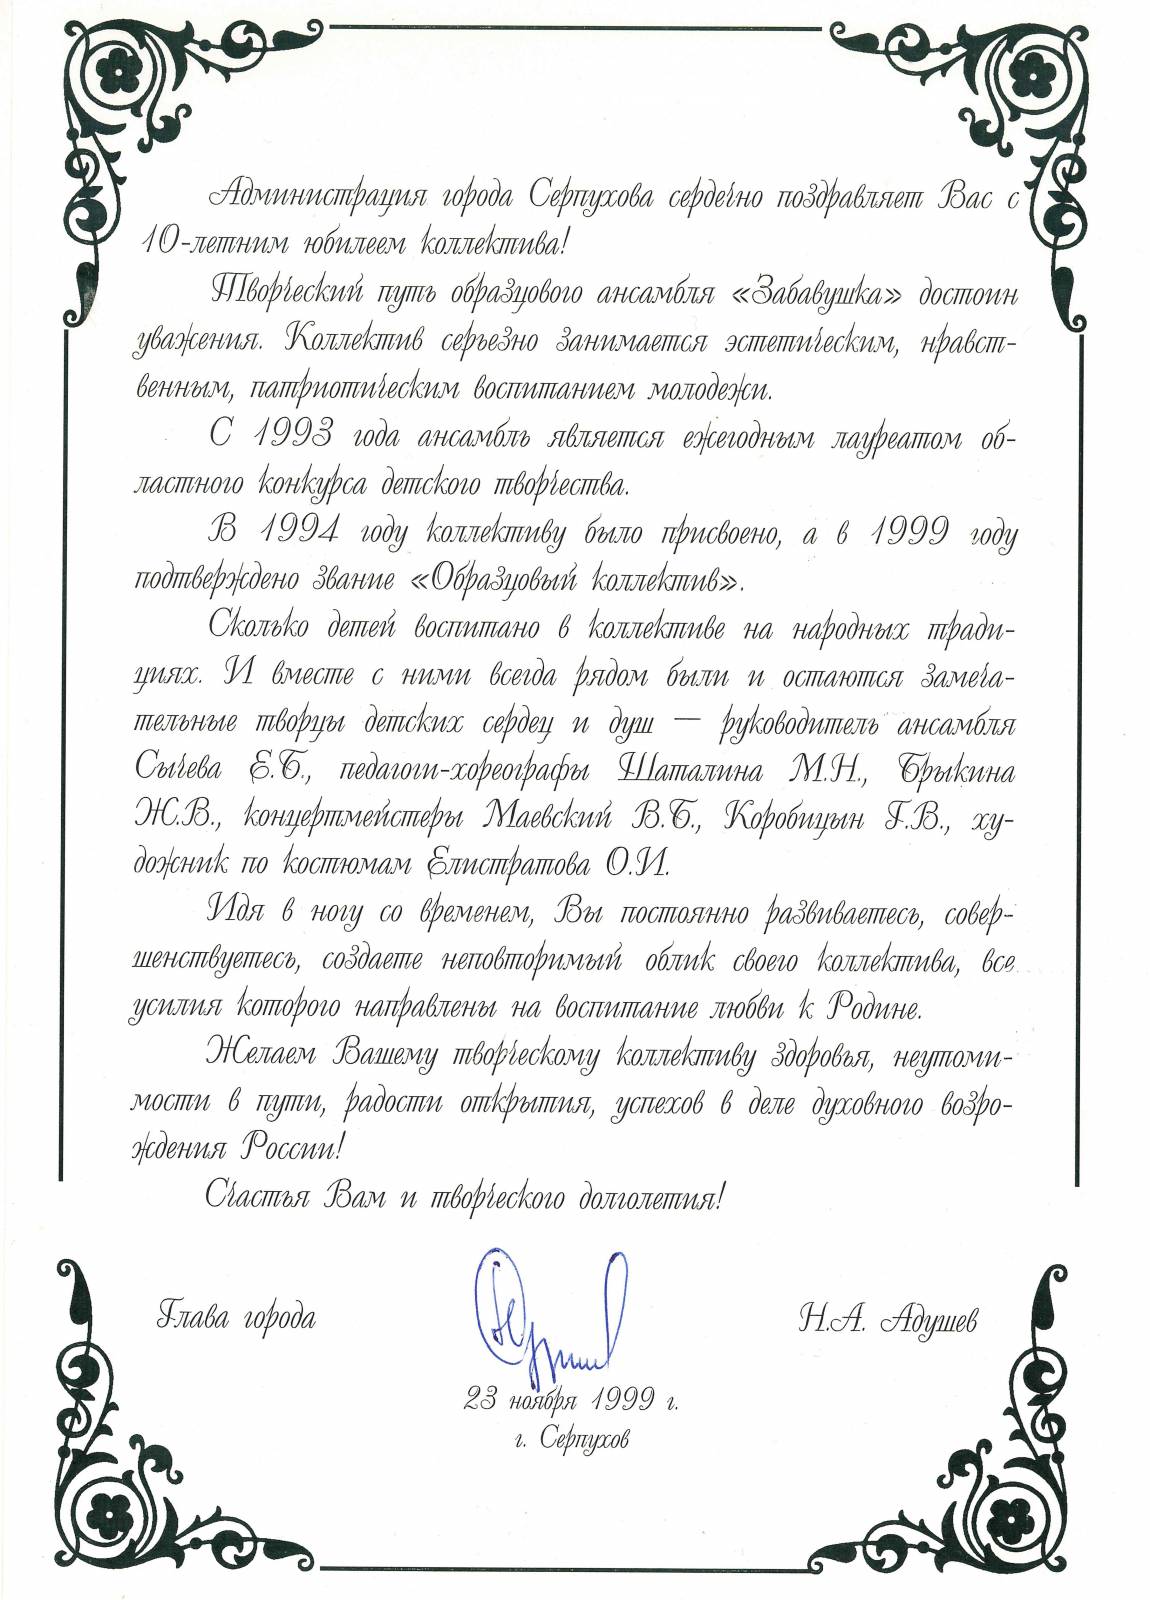 Администрация города Серпухова сердечно поздравляет Вас с
10-летним юбилеем коллектива!
Творческий путь образцового ансамбля «Забавушка» достоин
уважения. Коллектив серьезно занимается эстетическим, нравст-
венным, патриотическим воспитанием молодежи.
С 1993 года ансамбль является ежегодным лауреатом об-
ластного конкурса детского творчества.
В 1994 году коллективу было присвоено, а в 1999 году
подтверждено звание «Образцовый коллектив».
Сколько детей воспитано в коллективе на народных тради-
циях. И вместе с ними всегда рядом были и остаются замеча-
тельные творцы детских сердец и душ — руководитель ансамбля
Сычева Е.Б., педагоги-хореографы Шаталина М.Н., Брыкина
Ж.В., концертмейстеры Маевский В.Б., Коробицын Г.В., ху-
дожник по костюмам Елистратова О.И.
Идя в ногу со временем, Вы постоянно развиваетесь, совер-
шенствуетесь, создаете неповторимый облик своего коллектива, все
усилия которого направлены на воспитание любви к Родине.
Желаем Вашему творческому коллективу здоровья, неутоми-
мости в пути, радости открытия, успехов в деле духовного возро-
ждения России!
Счастья Вам и творческого долголетия!
Глава города Н.А. Адушев
23 ноября 1999 г.
г. Серпухов